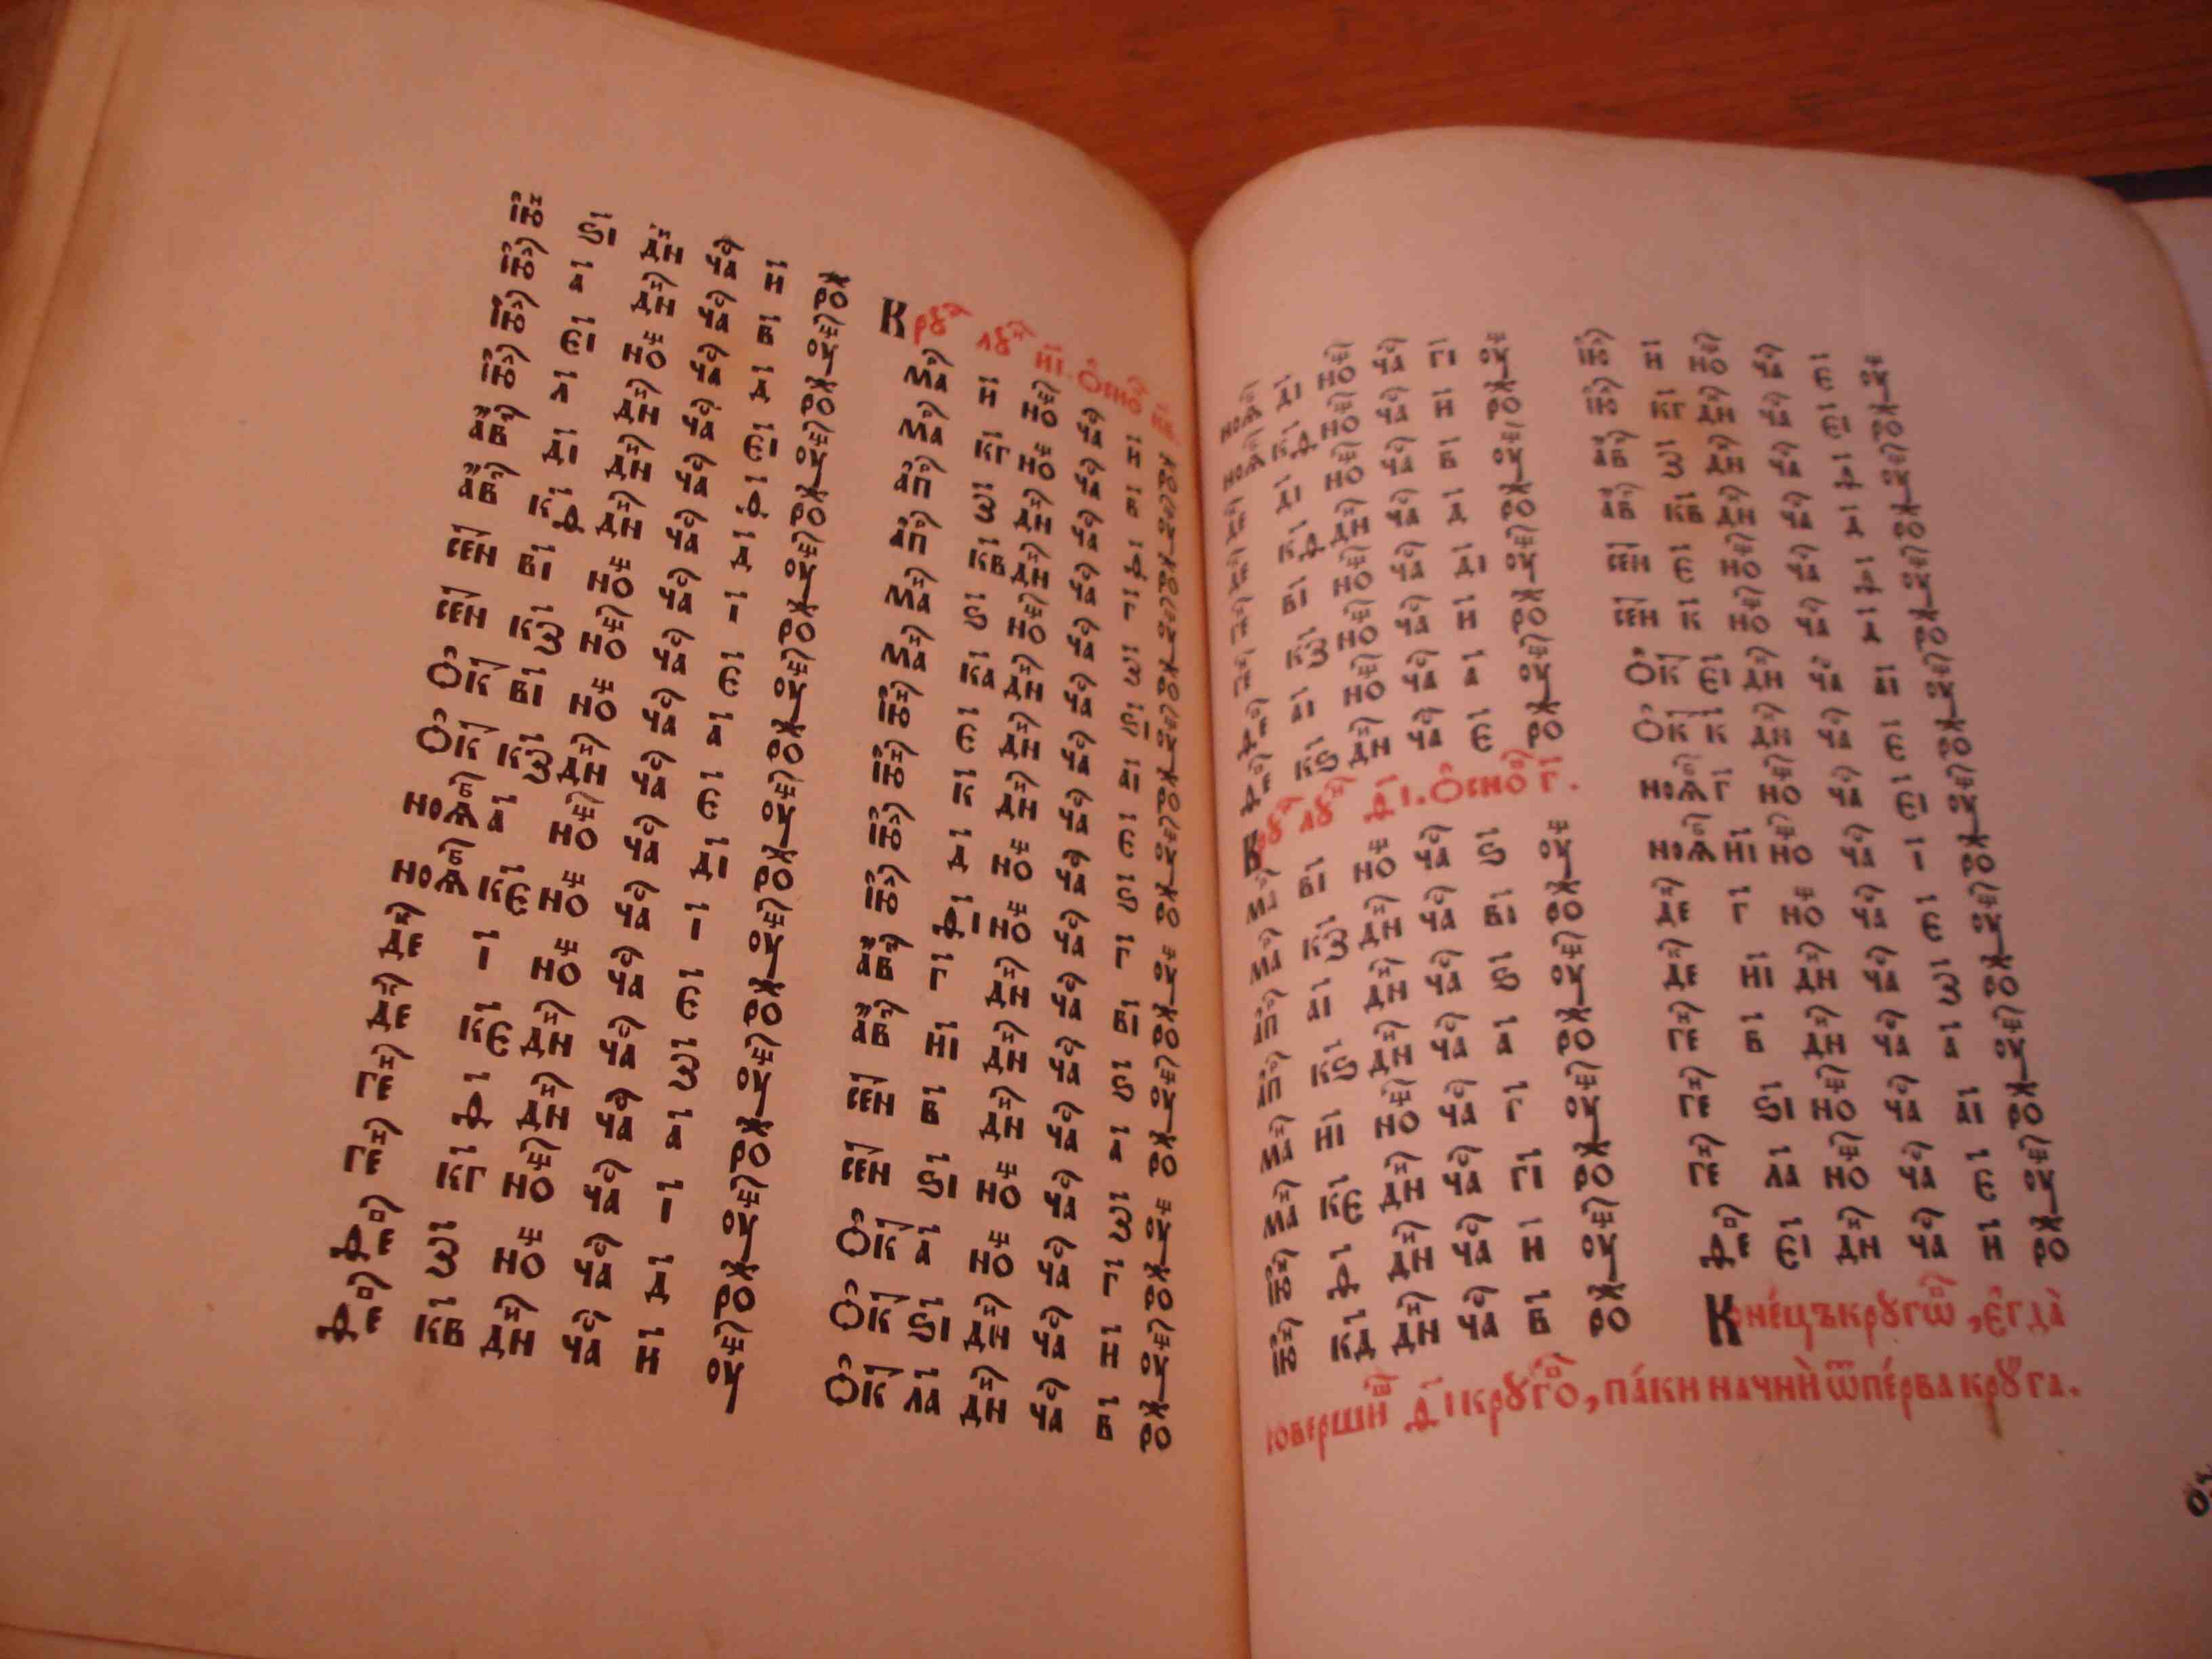 іюⷩ҇ ѕ҃і днⷩ҇ чаⷭ҇ и҃ роⷤ
іюⷧ҇ а҃ днⷩ҇ чаⷭ҇ в҃ оущ
іюⷧ҇ е҃і ноⷳ҇ чаⷭ҇ д҃ роⷤ
іюⷧ҇ л҃ днⷩ҇ чаⷭ҇ е҃і оущ
а҆́вⷢ҇ д҃і днⷩ҇ чаⷭ҇ ѳ҃ роⷤ
а҆́вⷢ҇ к҃ѳ днⷩ҇ чаⷭ҇ д҃ оущ
сеⷩ҇ в҃і ноⷳ҇ чаⷭ҇ і҃ роⷤ
сеⷩ҇ к҃з ноⷳ҇ чаⷭ҇ е҃ оущ
Ѻ҆кⷮ҇ в҃і ноⷳ҇ чаⷭ҇ а҃ роⷤ
Ѻ҆кⷮ҇ к҃з днⷩ҇ чаⷭ҇ е҃ оущ
ноѧⷠ҇ а҃і ноⷳ҇ чаⷭ҇ д҃і роⷤ
ноѧⷠ҇ к҃е ноⷳ҇ чаⷭ҇ і҃ оущ
деⷦ҇ і҃ ноⷳ҇ чаⷭ҇ е҃ роⷤ
деⷦ҇ к҃е днⷩ҇ чаⷭ҇ з҃ оущ
геⷩ҇ ѳ҃ днⷩ҇ чаⷭ҇ а҃ роⷤ
геⷩ҇ к҃г ноⷳ҇ чаⷭ҇ і҃ оущ
феⷡ҇ з҃ ноⷳ҇ чаⷭ҇ д҃ роⷤ
феⷡ҇ к҃в днⷩ҇ чаⷭ҇ и҃ оущ
Крꙋⷢ҇ лꙋⷩ҇ и҃і. Ѻ҆сноⷡ҇ к҃в.
маⷬ҇ и҃ ноⷳ҇ чаⷭ҇ и҃ роⷤ
маⷬ҇ к҃г ноⷳ҇ чаⷭ҇ в҃ оущ
а҆пⷬ҇ з҃ днⷩ҇ чаⷭ҇ ѳ҃ роⷤ
а҆пⷬ҇ к҃в днⷩ҇ чаⷭ҇ г҃ оущ
маⷵ ѕ҃ ноⷳ҇ чаⷭ҇ з҃ роⷤ
маⷵ к҃а днⷩ҇ чаⷭ҇ ѕ҃і оущ
іюⷩ҇ е҃ днⷩ҇ чаⷭ҇ а҃і роⷤ
іюⷩ҇ к҃ днⷩ҇ чаⷭ҇ е҃ оущ
іюⷧ҇ д҃ ноⷳ҇ чаⷭ҇ ѕ҃ роⷤ
іюⷧ҇ ѳ҃і ноⷳ҇ чаⷭ҇ г҃ оущ
а҆́вⷢ҇ г҃ днⷩ҇ чаⷭ҇ в҃і роⷤ
а҆́вⷢ҇ и҃і днⷩ҇ чаⷭ҇ ѕ҃ оущ
сеⷩ҇ в҃ днⷩ҇ чаⷭ҇ а҃ роⷤ
сеⷩ҇ ѕ҃і ноⷳ҇ чаⷭ҇ з҃ оущ
Ѻ҆кⷮ҇ а҃ ноⷳ҇ чаⷭ҇ г҃ роⷤ
Ѻ҆кⷮ҇ ѕ҃і днⷩ҇ чаⷭ҇ и҃ оущ
Ѻ҆кⷮ҇ л҃а днⷩ҇ чаⷭ҇ в҃ роⷤ
ноѧⷠ҇ д҃і ноⷳ҇ чаⷭ҇ г҃і оущ
ноѧⷠ҇ к҃ѳ ноⷳ҇ чаⷭ҇ и҃ роⷤ
деⷦ҇ д҃і ноⷳ҇ чаⷭ҇ в҃ оущ
деⷦ҇ к҃ѳ днⷩ҇ чаⷭ҇ д҃ роⷤ
геⷩ҇ в҃і ноⷳ҇ чаⷭ҇ д҃і оущ
геⷩ҇ к҃з ноⷳ҇ чаⷭ҇ и҃ роⷤ
феⷡ҇ а҃і ноⷳ҇ чаⷭ҇ а҃ оущ
феⷡ҇ к҃ѕ днⷩ҇ чаⷭ҇ е҃ роⷤ
Крꙋⷢ҇ лꙋⷩ҇ ѳ҃і. Ѻ҆сноⷡ҇ г҃.
маⷬ҇ в҃і ноⷳ҇ чаⷭ҇ ѕ҃ оущ
маⷬ҇ к҃з днⷩ҇ чаⷭ҇ в҃і роⷤ
а҆пⷬ҇ а҃і днⷩ҇ чаⷭ҇ ѕ҃ оущ
а҆пⷬ҇ к҃ѕ днⷩ҇ чаⷭ҇ а҃ роⷤ
маⷵ и҃і ноⷳ҇ чаⷭ҇ г҃ оущ
маⷵ к҃е днⷩ҇ чаⷭ҇ г҃і роⷤ
іюⷩ҇ ѳ҃ днⷩ҇ чаⷭ҇ и҃ оущ
іюⷩ҇ к҃д днⷩ҇ чаⷭ҇ в҃ роⷤ
іюⷧ҇ и҃ ноⷳ҇ чаⷭ҇ е҃ оущ
іюⷧ҇ к҃г днⷩ҇ чаⷭ҇ е҃і роⷤ
а҆́вⷢ҇ з҃ днⷩ҇ чаⷭ҇ ѳ҃ оущ
а҆́вⷢ҇ к҃в днⷩ҇ чаⷭ҇ д҃ роⷤ
сеⷩ҇ е҃ ноⷳ҇ чаⷭ҇ ѳ҃ оущ
сеⷩ҇ к҃ ноⷳ҇ чаⷭ҇ д҃ роⷤ
Ѻ҆кⷮ҇ е҃і днⷩ҇ чаⷭ҇ а҃і оущ
Ѻ҆кⷮ҇ к҃ днⷩ҇ чаⷭ҇ е҃ роⷤ
ноѧⷠ҇ г҃ ноⷳ҇ чаⷭ҇ е҃і оущ
ноѧⷠ҇ и҃і ноⷳ҇ чаⷭ҇ і҃ роⷤ
деⷦ҇ г҃ ноⷳ҇ чаⷭ҇ е҃ оущ
деⷦ҇ и҃і днⷩ҇ чаⷭ҇ з҃ роⷤ
геⷩ҇ в҃ днⷩ҇ чаⷭ҇ а҃ оущ
геⷩ҇ ѕ҃і ноⷳ҇ чаⷭ҇ а҃і роⷤ
геⷩ҇ л҃а ноⷳ҇ чаⷭ҇ е҃ оущ
феⷡ҇ е҃і днⷩ҇ чаⷭ҇ и҃ роⷤ
Коне́цъ крꙋгѡⷡ҇, є҆гда̀
соверши́ши ѳ҃і крꙋго́въ, па́ки начнѝ ѿ пе́рва крꙋ́га.